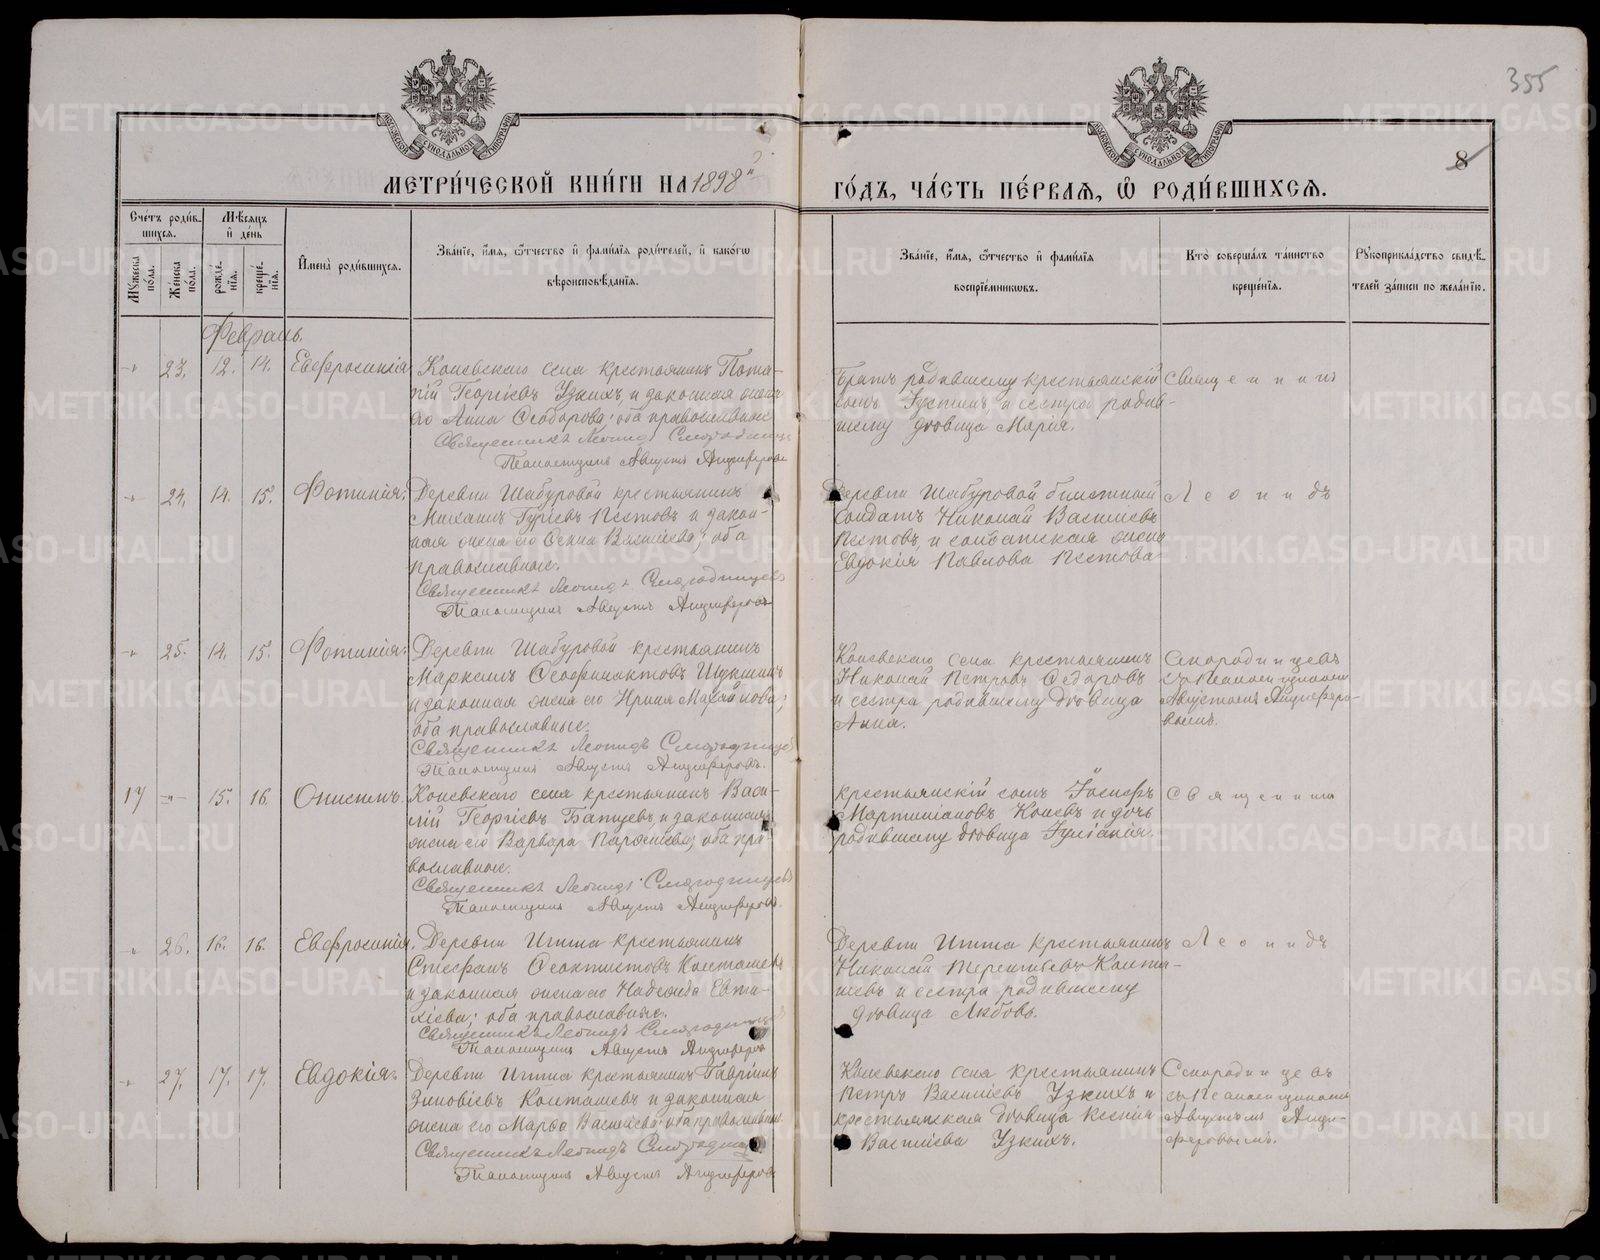 355
8
МЕТРИ́ЧЕСКОЙ КНИ́ГИ НА 1898й
ГО́ДЪ, ЧА́СТЬ ПЕ́РВАЯ, Ѽ РОДИ́ВШИХСѦ.
Сче́тъ роди́в-
шихся.
Мѣ́сяцъ
и҆ де́нь
Мꙋжеска по́ла.
Же́нска по́ла.
рожде́нїя.
креще́нїя.
И҆мена̀ роди́вшихся.
Зва́нїе, и҆́мя, ѻ҆́тчество и҆ фами́лїя роди́телей, и҆ како́гѡ
вѣроисповѣ́данїя.
Зва́нїе, и҆́мя, ѻ҆́тчество и҆ фами́лїя
воспрїе́мникѡвъ.
Кто̀ соверша́лъ та́инство
креще́нїя.
Рꙋкоприкла́дство свидѣ́-
телей за́писи по жела́нїю.
Февраль.
-"- 23. 12. 14. Евфросинія
Коневскаго села крестьянинъ Пота-
пій Георгіевъ Узкихъ, и законная жена
его Анна Ѳеодорова; оба православные
Священникъ Леонидъ Смородинцевъ
Псаломщикъ Августъ Анциферовъ
Братъ родившему крестьянскій
сынъ Іустинъ, и сестра родив-
шему дѣвица Марія.
Священникъ
-"- 24. 14. 15. Фотинія.
Деревни Шабуровой крестьянинъ
Михаилъ Гуріевъ Пѣстовъ и закон-
ная жена его Ѳекла Васильева; оба
православные.
Священникъ Леонидъ Смородинцевъ
Псаломщикъ Августъ Анциферовъ
Деревни Шабуровой билетный
солдатъ Николай Васильевъ
Пѣстовъ, и солдатская жена
Евдокія Павлова Пѣстова
Леонидъ
-"- 25. 14. 15. Фотинія.
Деревни Шабуровой крестьянинъ
Маркелъ Ѳеофилактовъ Щукинъ
и законная жена его Ирина Михайлова;
оба православные.
Священникъ Леонидъ Смородинцевъ
Псаломщикъ Августъ Анциферовъ.
Коневскаго села крестьянинъ
Николай Петровъ Ѳедоровъ
и сестра родившему дѣвица
Анна.
Смородинцевъ
съ Псаломщикомъ
Августомъ Анциферо-
вымъ.
17 -"- 15. 16. Онисимъ.
Коневскаго села крестьянинъ Васи-
лій Георгіевъ Бапуевъ и законная
жена его Варвара Парѳеньева; оба пра-
вославные.
Священникъ Леонидъ Смородинцевъ
Псаломщикъ Августъ Анциферовъ.
крестьянскій сынъ Іосифъ
Мартиніановъ Коневъ и дочь
родившему дѣвица Іуліанія.
Священникъ
" 26. 16. 16. Евфросинія.
Деревни Итша крестьянинъ
Стефанъ Ѳеоктистовъ Колташевъ
и законная жена его Надежда Евти-
хіева; оба православные.
Священникъ Леонидъ Смородинцевъ
Псаломщикъ Августъ Анциферовъ
Деревни Итша крестьянинъ
Николай Терентьевъ Колта-
шевъ и сестра родившему
дѣвица Любовь.
Леонидъ
-"- 27. 17. 17. Евдокія.
Деревни Итша крестьянинъ Гавріилъ
Зиновіевъ Колташевъ и законная
жена его Марѳа Васильева; оба православные
Священникъ Леонидъ Смородинцевъ
Псаломщикъ Августъ Анциферовъ
Коневскаго села крестьянинъ
Петръ Васильевъ Узкихъ и
крестьянская дѣвица Ксенія
Васильева Узкихъ.
Смородинцевъ
съ Псаломщикомъ
Августомъ Анци-
феровымъ.